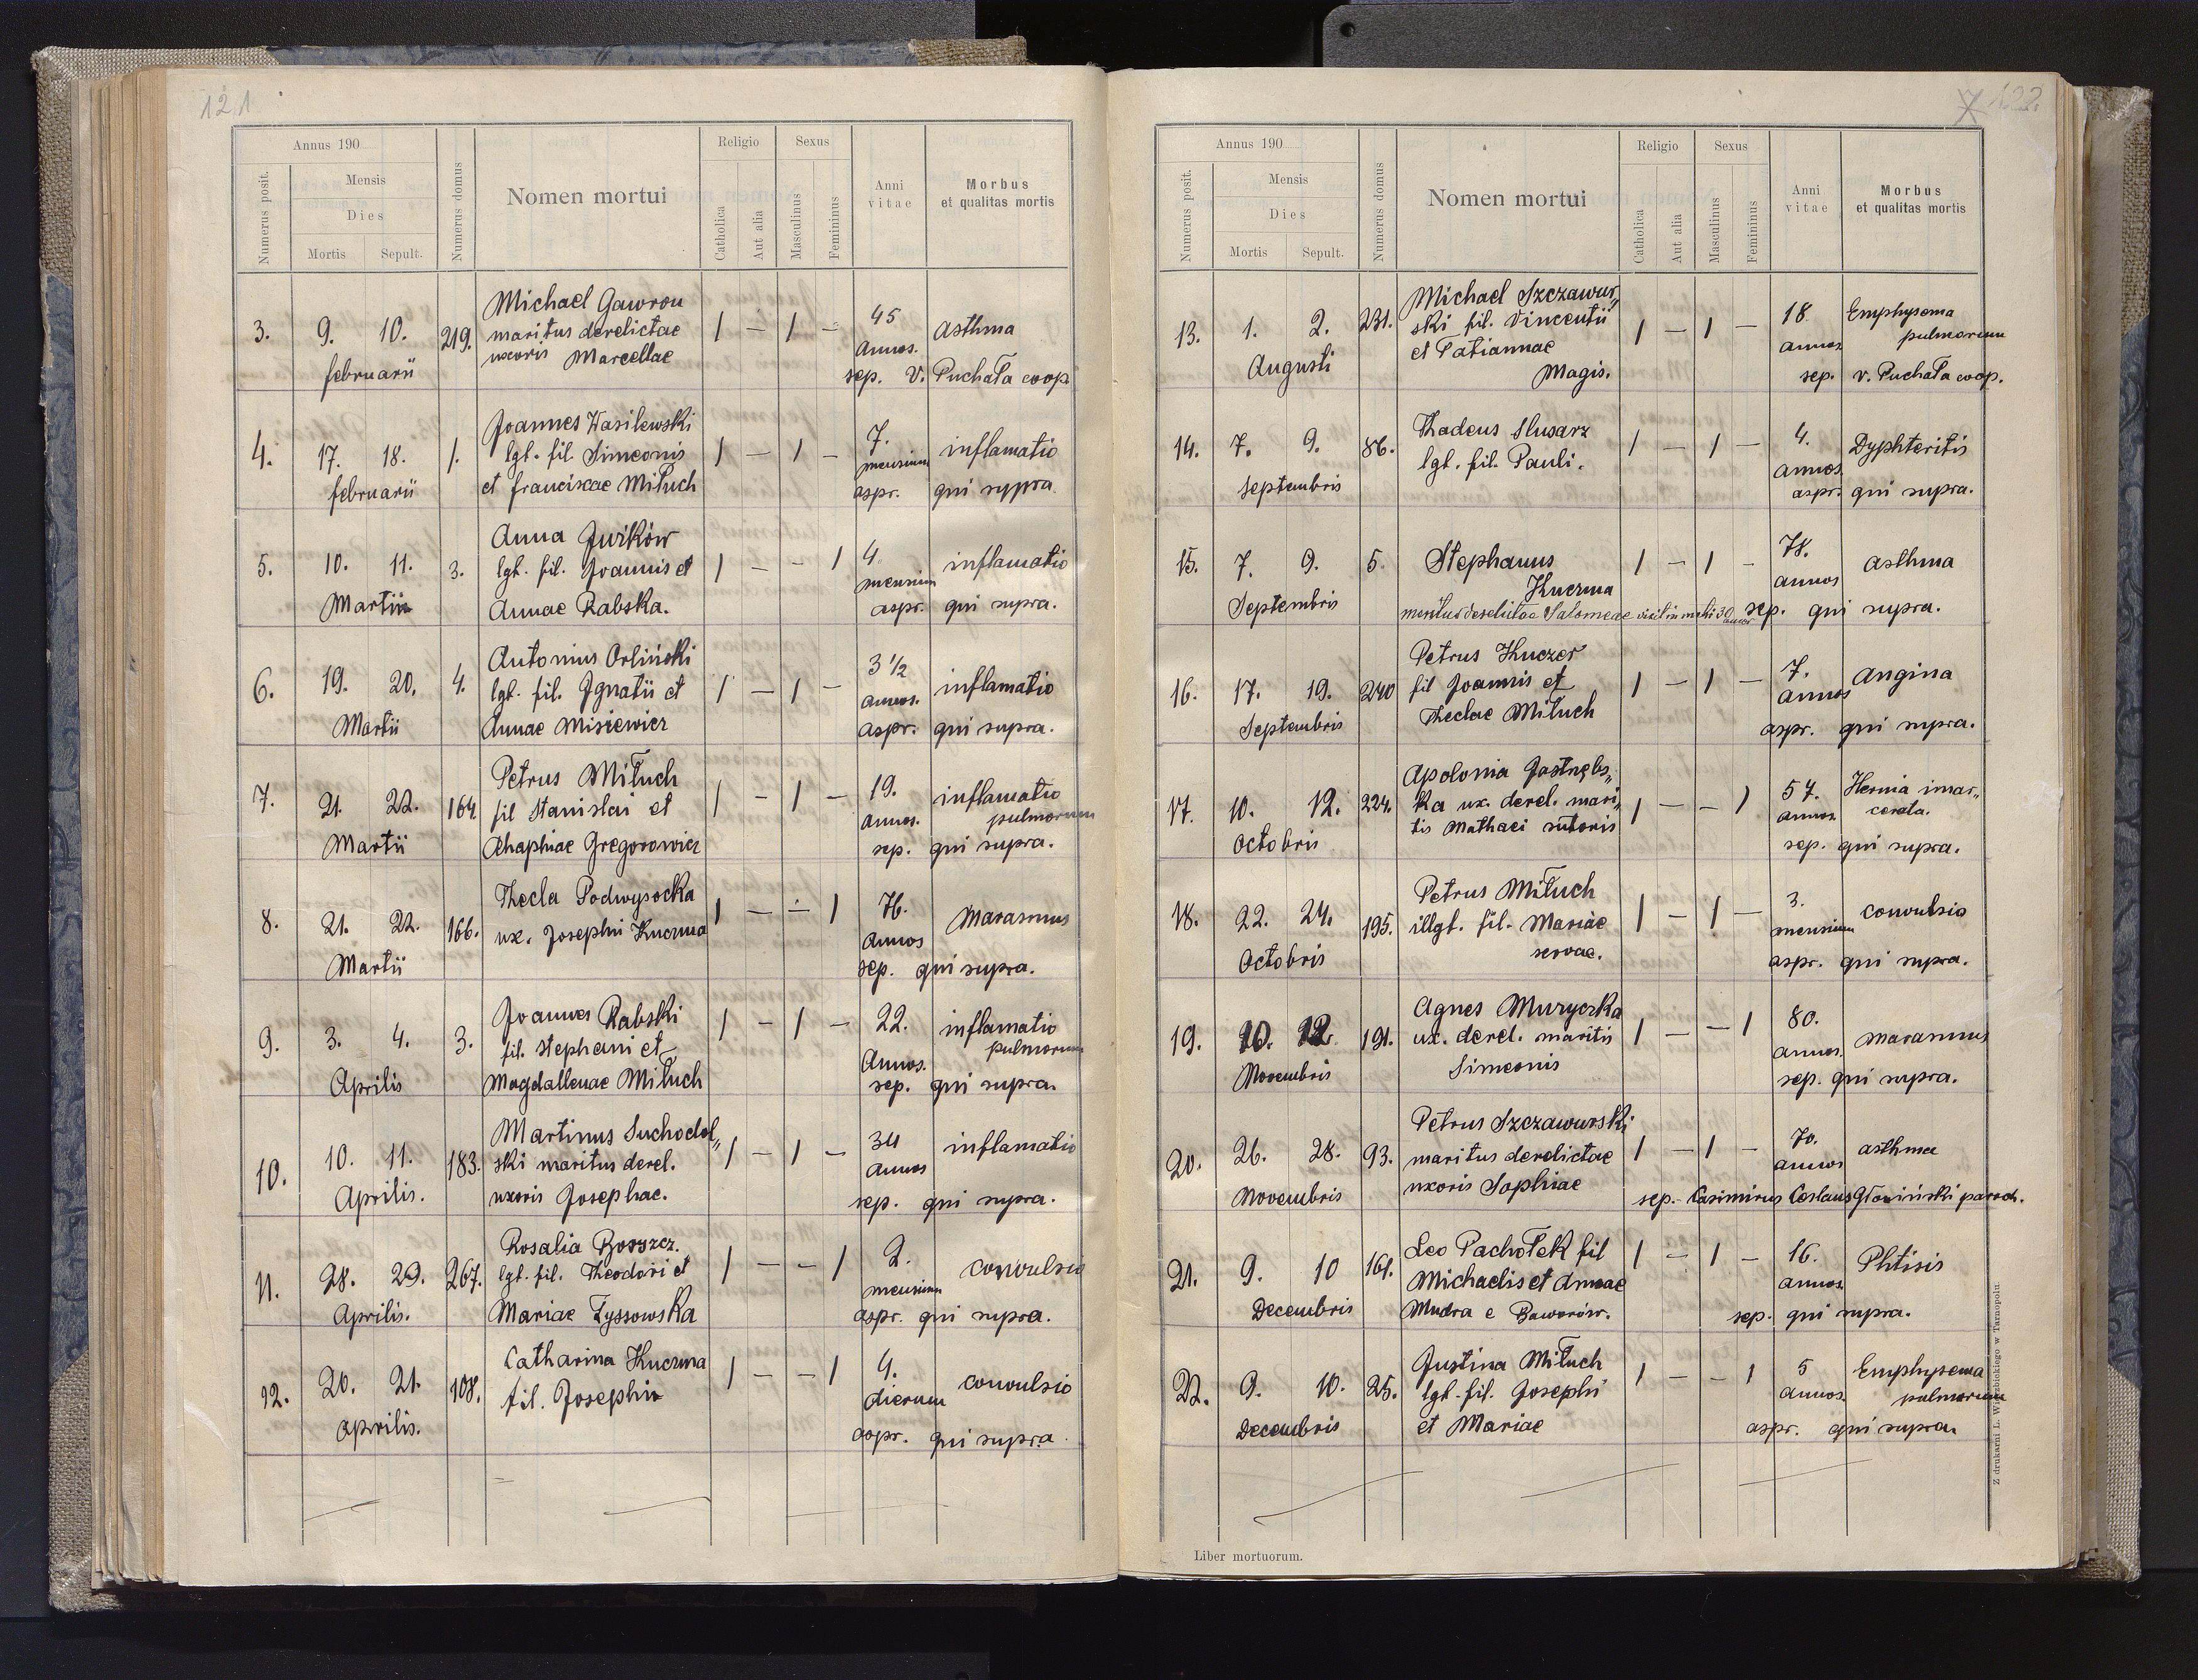 121
Annus 190
Numerus posit.
Mensis
Dies
Mortis Sepult.
Numerus domus
Nomen mortui
Religio
Catholica
Aut alia
Sexus
Masculinus
Femininus
Anni
vitae
Morbus
et qualitas mortis
3. 9. 10. februarii 219.
Michael Gawron
maritus derelictae
uxoris Marcellae
1 — 1 —
45
Annos.
asthma
sep. V. Puchała coop.
4. 17. 18. februarii 1.
Joannes Wasilewski
lgt. fil Simeonis
et franciscae Miłuch
1 — 1 —
7.
mensium
inflamatio
aspr. qui sypra
5. 10. 11. Martii 3.
Anna Jurków
lgt. fil. Joannis et
Annae Rabska.
1 — — 1
4.
mensium
inflamatio
aspr. qui supra.
6. 19. 20. Martii 4.
Antonius Orliński
lgt. fil. Ignatii et
Annae Misiewicz
1 — 1 —
3 1/2
annos.
inflamatio
aspr. qui supra.
7. 21. 22. Martii 164
Petrus Miłuch
fil Stanislai et
Ahaphiae Gregorowicz
1 — 1 —
19.
annos.
inflamatio
pulmorum
sep. qui supra.
8. 21. 22. Martii 166.
Thecla Podwysocka
ux. Josephi Kuczma
1 — — 1
76.
Annos
Marasmus
sep. qui supra.
9. 3. 4. Aprilis 3.
Joannes Rabski
fil. Stephani et
Magdallenae Miłuch
1 — 1 —
22.
Annos.
inflamatio
pulmorum
sep. qui supra.
10. 10. 11. Aprilis. 183.
Martinus Suchodol„
ski maritus derel.
uxoris Josephae.
1 — 1 —
34
annos
inflamatio
sep. qui supra.
11. 28. 29. Aprilis. 267.
Rosalia
lgt. fil. Theodori et
Mariae Łyssowska
1 — — 1
2.
mensium
convulsio
aspr. qui supra.
12. 20. 21. aprilis. 108.
Catharina Kuczma
fil. Josephi
1 — — 1
4.
dierum
convulsio
aspr. qui supra.
7 122.
Annus 190
Numerus posit.
Mensis
Dies
Mortis Sepult.
Numerus domus
Nomen mortui
Religio
Catholica
Aut alia
Sexus
Masculinus
Femininus
Anni
vitae
Morbus
et qualitas mortis
13. 1. 2. Augusti 231.
Michael Szczawur„
ski fil. Vincentii
et Tatiannae
Magis.
1 — 1 —
18
annos
Emphysema
pulmorum
sep. v. Puchała coop.
14. 7. 9. Septembris 86.
Thadeus Slusarz
lgt. fil. Pauli.
1 — 1 —
4.
annos.
Dyphteritis
aspr. qui supra.
15. 7. 9. Septembris 5.
Stephanus
Kuczma
1 — 1 —
78.
annos
asthma
Salomeae
sep. qui supra.
16. 17. 19. Septembris 240
Petrus Kuczer
fil Joannis et
Theclae Miłuch
1 — 1 —
7.
annos
Angina
aspr. qui supra.
17. 10. 12. Octobris 224.
Apolonia Jastrzębs„
ka ux. derel. mari„
tis Mathaei sutoris
1 — — 1
57.
annos
Hernia inar„
cerata.
sep. qui supra.
18. 22. 24. Octobris 195.
Petrus Miłuch
illgt. fil. Mariae
servae.
1 — 1 —
3.
mensium
convulsio
aspr. qui supra.
19. 10. 12. Novembris 191.
Agnes Muryczka
ux. derel. mariti
Simeonis
1 — — 1
80.
annos.
marasmus
sep. qui supra.
20. 26. 28. Novembris 93.
Petrus Szczawurski
maritus derelictae
uxoris Sophiae
1 — 1 —
70.
annos
asthma
sep. Casimirus Ceslaus Głowiński paroch.
21. 9. 10 Decembris 161.
Leo Pachołek fil
Michaelis et Annae
Mudra e Baworów.
1 — 1 —
16.
annos.
Phtisis
sep. qui supra.
22. 9. 10. Decembris 25.
Justina Miłuch
lgt. fil. Josephi
et Mariae
1 — — 1
5
annos.
Emphysema
pulmorum
aspr. qui supra.
Liber mortuorum.
Z drukarni L. Wierzbickiego w Tarnopolu.